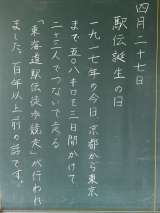 四月二十七日
駅伝誕生の日
一九一七年の今日 京都から東京
まで五〇八キロを三日間かけて
二十三人でつないで走る
「東海道駅伝徒歩競走」が行われ
ました。百年以上前の話です。